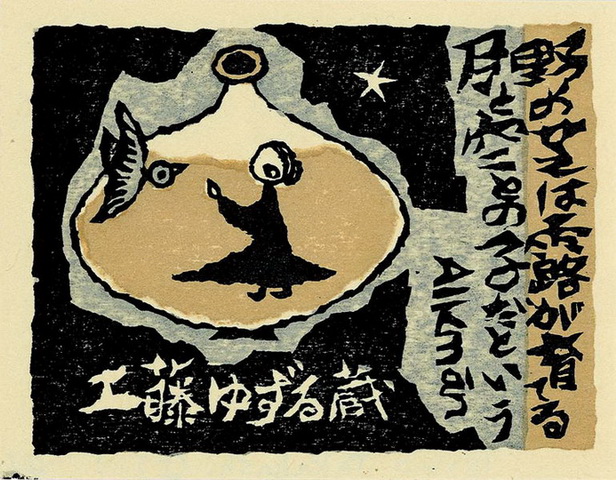 野の花は露が育てる
月と空との子だという
Alkman
工藤ゆずる蔵